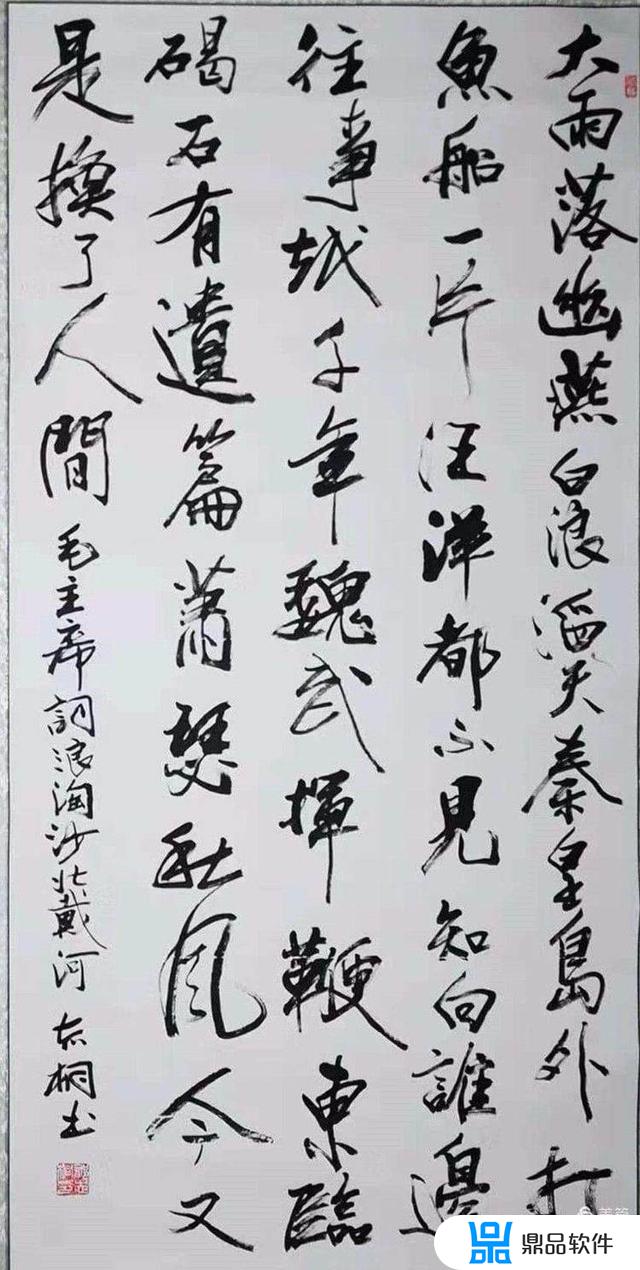 大雨落幽燕白浪滔天秦皇島外打
魚船一片汪洋都不見知向誰邊
往事越千年魏武揮鞭東臨
碣石有遺篇蕭瑟秋風今又
是換了人間
毛主席詞浪淘沙北戴河 桐书
鼎品软件